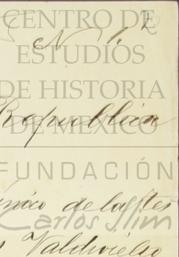 CENTRO DE
ESTUDIOS
DE HISTORIA
Republica
DE MÉXICO
FUNDACIÓN
de las
Carlos Slim
Valdivielso